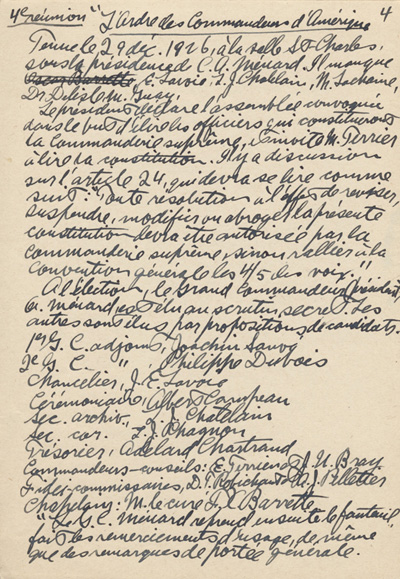 4e réunion "L'Ordre des Commandeurs d'Amérique 4
Tenue le 29 déc. 1926, à la salle St-Charles,
sous la présidence de C.A. Ménard. Il manque
Oscar Barrette, E. Savoie, L.J. Chatelain, M.
Dr Delisle M.
Le président déclare l'assemblée convoquée
dans le but d'élire les officiers qui constitueront
la Commanderie suprême, invite M. Perrier
à lire la constitution. Il y a discussion
sur l'article 24, qui devra se lire comme
suit: "Toute résolution à l'effet de reviser,
suspendre, modifier ou abroger la présente
constitution devra être autorisée par la
commanderie suprême, sinon rallier à la
convention générale les 4/5 des voix."
A l'élection, le Grand Commandeur (président)
Ménard, est élu au scrutin secret. Les
autres sont élus par propositions de candidats.
1er G.C. adjoint, Joachim Sauvé
2e G.C. " , Philippe Dubois
Chancelier, J.E. Savoie
Cérémoniaire, Albert Campeau
Séc. archiv. L.J. Chatelain
Sec. cor. L.J. Chagnon
Trésorier: Adélard Chartrand
Commandeurs-conseils: E. J. U. Bray
Fidei-commissaires, D. Robichaud A.J. Pelletier
Chapelain: M. le curé Barrette
"Le G.C. Ménard reprend ensuite le fauteuil,
fait les remerciements d'usage, de même
que des remarques de portée générale.